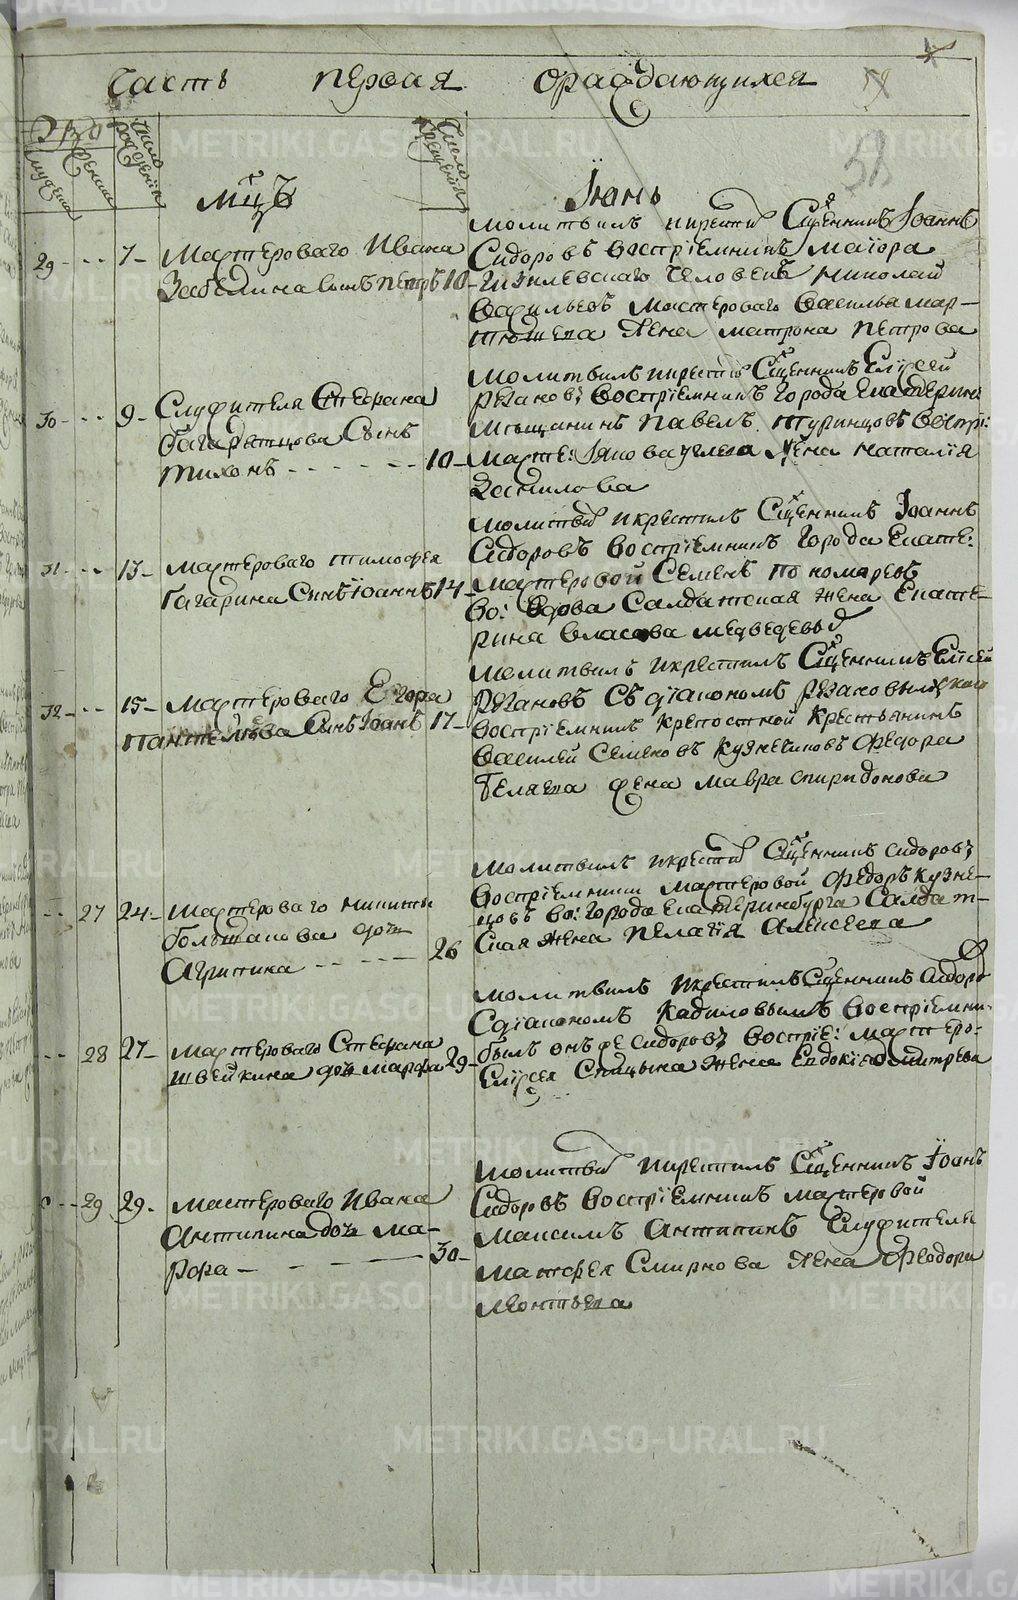 Часть первая ораждающихся
59
58
Число рождения
Число крещения
Мцъ Iюнь
29 7 Мастероваго Ивана
Забелина сынъ Петръ 10
молитвилъ икрестил Сщенникъ Iоаннъ
Сидоровъ Воспрiемникъ маiора
человекъ николай
васильевъ мастероваго василья мар-
тюшева жена матрона петрова
30 9 Служителя Стефана
багарятцова Сынъ
тихонъ 10
молитвилъ икрестил Сщенникъ Елисей
Рязановъ Воспрiемникъ города Екатерин:
мещанинъ павелъ туринцовъ Воспр:
масте: Iякова жена наталiя
Данилова
31 13 мастероваго тимофея
Гагарина Сынъ Iоаннъ 14
молитвил икрестилъ Сщенникъ Iоаннъ
Сидоровъ Воспрiемникъ города Екате:
мастеровой Семенъ пономаревъ
во: вдова Салдатская жена Екате-
рина власова медведевыхъ
32 15 мастероваго Егора
пантелеева Сынъ Iоаннъ 17
молитвилъ икрестилъ Сщенникъ Елисей
Рязановъ Съ дiакономъ Рязановымъ
воспрiемникъ крепостной крестьянинъ
василей Семеновъ кузнецовъ федора
беляева жена мавра спиридонова
27 24 мастероваго никиты
большакова дочь
Агрипина 26
молитвилъ икрестил Сщенникъ сидоровъ
воспрiемники мастеровой федоръ кузне-
цовъ во: города Екатеринбурга Салдат-
ская жена пелагiя Алексеева
28 27 мастероваго Стефана
швейкина дочь марфа 29
молитвилъ икрестилъ Сщенникъ Сидоров
Сдiакономъ кадиловымъ воспрiемник
былъ онъ же сидоровъ воспрiе: мастеро:
Елисея Спицына жена Евдокiя дмитрева
29 29 мастероваго Ивана
Антипина дочь ма-
рфа 30
молитвил икрестилъ Сщенникъ Iоанъ
Сидоровъ воспрiемникъ мастеровой
максимъ антипинъ Служителя
матфея Смирнова жена феодора
леонтьева
METRIKI.GASO-URAL.RU